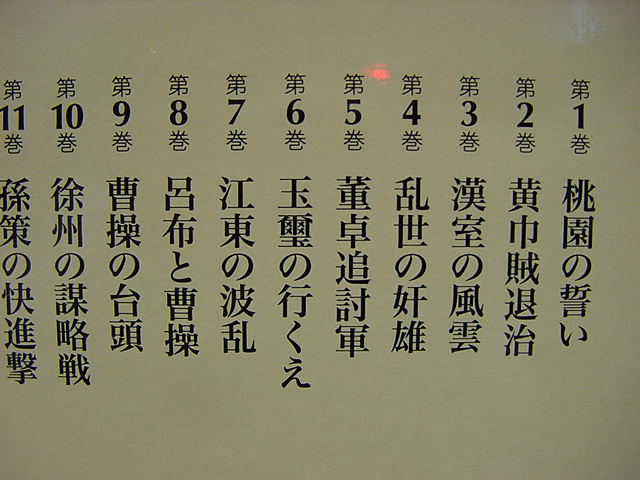 第1巻 桃園の誓い
第2巻 黄巾賊退治
第3巻 漢室の風雲
第4巻 乱世の奸雄
第5巻 董卓追討軍
第6巻 玉璽の行くえ
第7巻 江東の波乱
第8巻 呂布と曹操
第9巻 曹操の台頭
第10巻 徐州の謀略戦
第11巻 孫策の快進撃